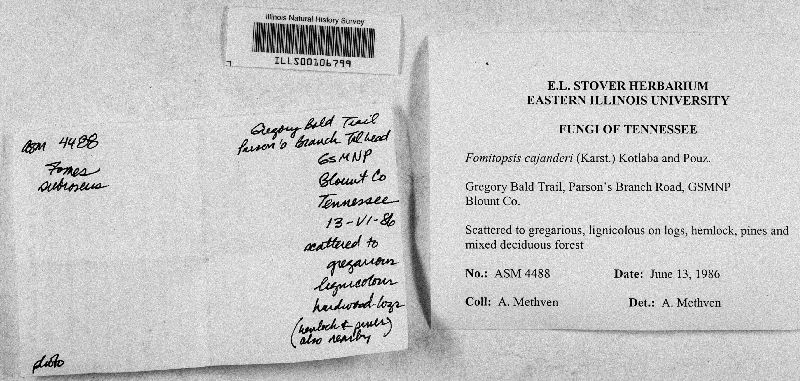 Illinois Natural History Survey
ILLS00106799
ASM 4488
Fomes
subroseus
Gregory Bald Trail
Parson's Branch Trlhead
GSMNP
Blount Co
Tennessee
13-VI-86
scattered to
gregarious
lignicolous
hardwood logs
(hemlock & pines)
also nearby
photo
E.L. STOVER HERBARIUM
EASTERN ILLINOIS UNIVERSITY
FUNGI OF TENNESSEE
Fomitopsis cajanderi (Karst.) Kotlaba and Pouz.
Gregory Bald Trail, Parson's Branch Road, GSMNP
Blount Co.
Scattered to gregarious, lignicolous on logs, hemlock, pines and
mixed deciduous forest
No.: ASM 4488 Date: June 13, 1986
Coll: A. Methven Det.: A. Methven